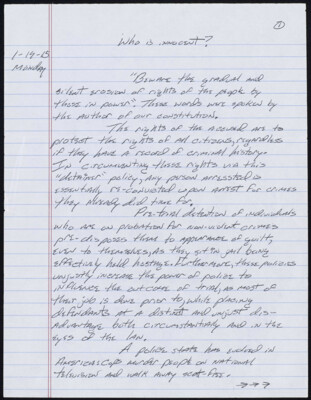 ①
Who is innocent?
1-19-15
Monday
"Beware the gradual and
silent erosion of rights of the people by
those in power". Those words were spoken by
the author of our constitution.
The rights of the accused are to
protect the rights of all citizens, regardless
if they have a record of criminal history.
In circumventing these rights via this
"detainer" policy, any person arrested is
essentially re-convicted upon arrest for crimes
they already did time for.
Pre-trial detention of individuals
who are on probation for non-violent crimes
pre-disposes them to appearance of guilt,
even to themselves, as they sit in jail being
effectively held hostage. Furthermore, these policies
unjustly increase the power of police to
influence the outcome of trial, as most of
their job is done prior to, while placing
defendants at a distinct and unjust dis-
advantage both circumstantially and in the
eyes of the law.
A police state has evolved in
America. Cops murder people on national
television and walk away scot-free.
→→→